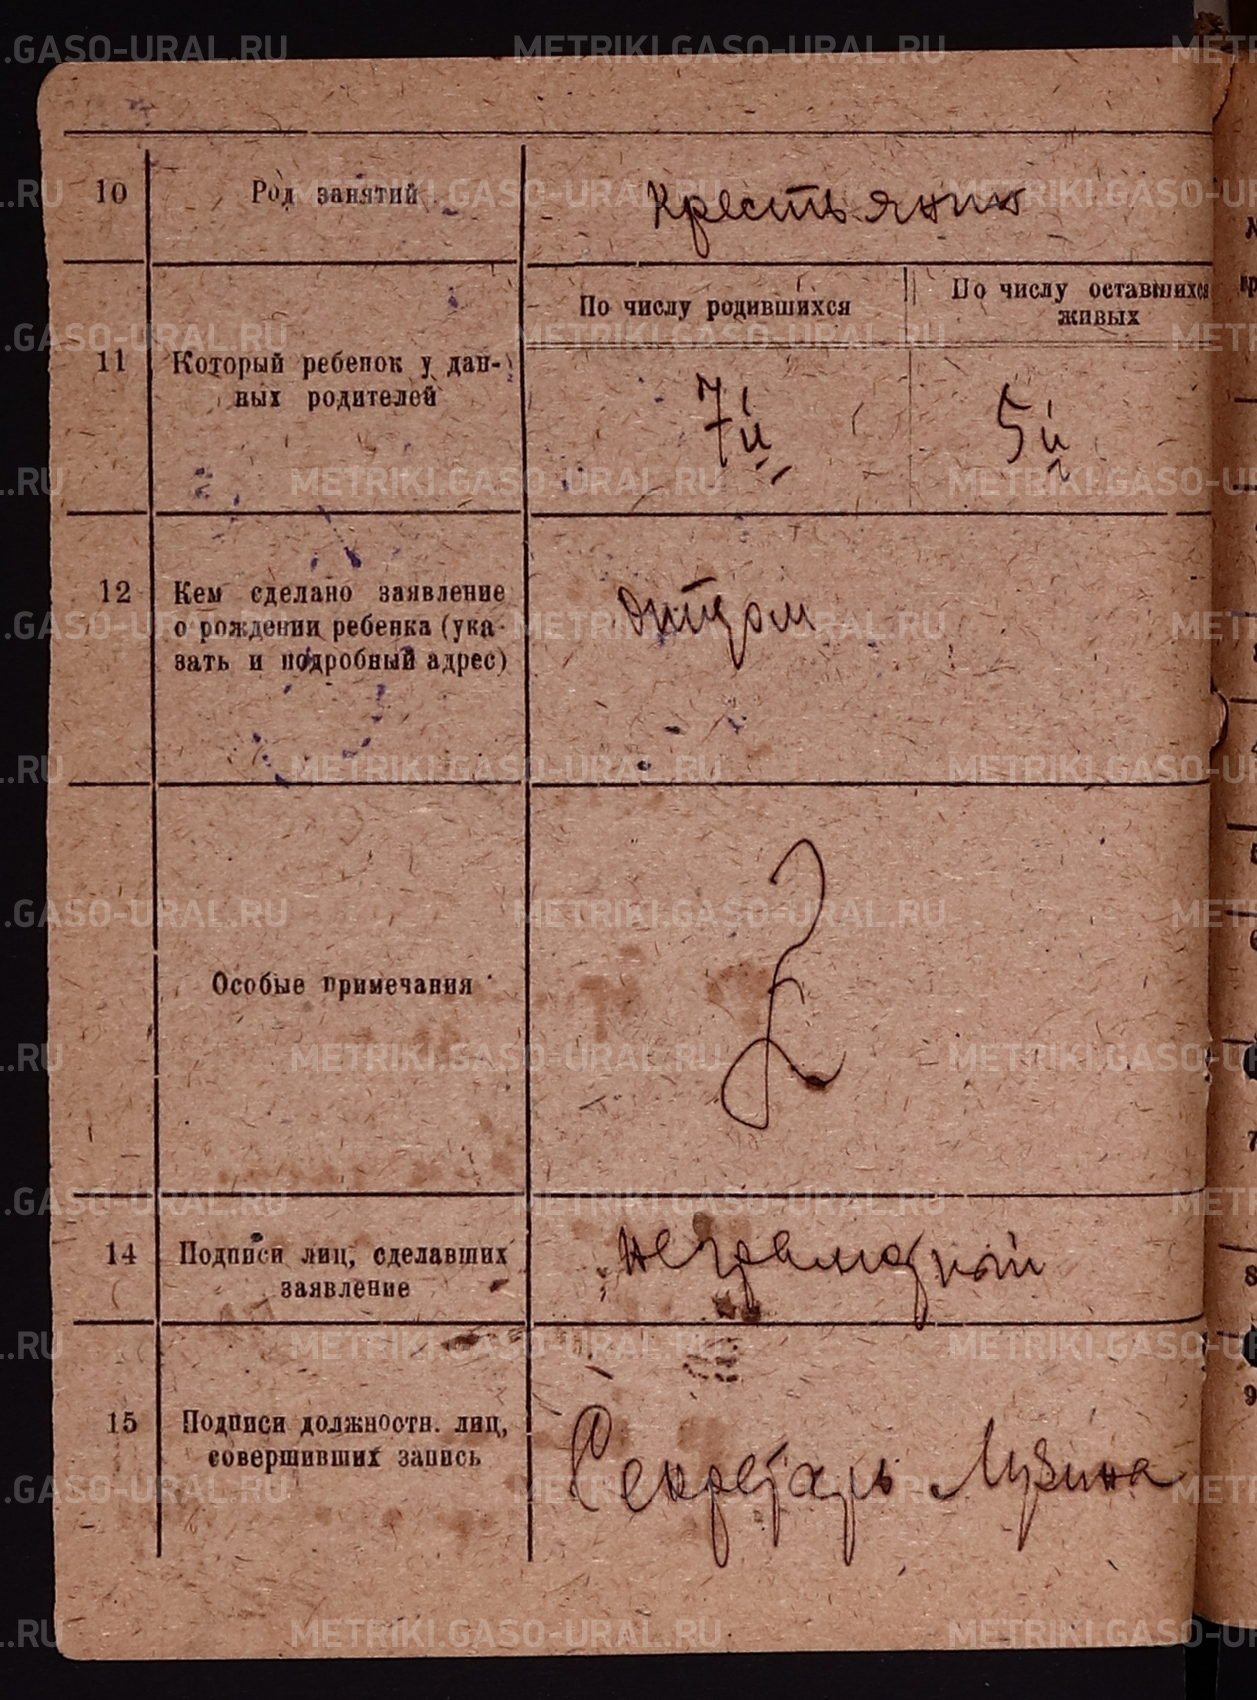 10 Род занятий крестьянин
По числу родившихся По числу оставшихся
живых
11 Который ребенок у дан-
ных родителей
7й 5й
12 Кем сделано заявление
о рождении ребенка (ука-
зать и подробный адрес)
отцом
Особые примечания
14 Подписи лиц, сделавших
заявление
неграмотный
15 Подписи должностн. лиц,
совершивших запись
Секретарь Лузина
METRIKI.GASO-URAL.RU